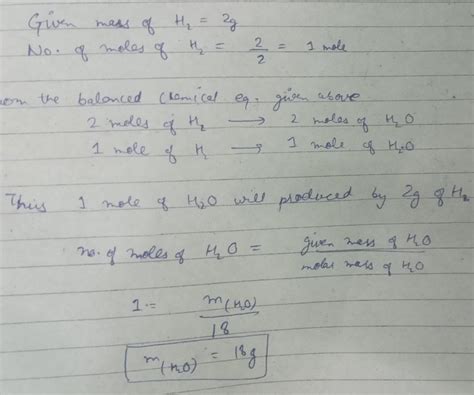 Given mass of H₂ = 2g
No. of moles of H₂ = 2/2 = 1 mole
om the balanced chemical eq. given above
2 moles of H₂ → 2 moles of H₂O
1 mole of H₂ → 1 mole of H₂O
Thus 1 mole of H₂O will produced by 2g of H₂
no. of moles of H₂O = given mass of H₂O / molar mass of H₂O
1 = m(H₂O) / 18
m(H₂O) = 18g